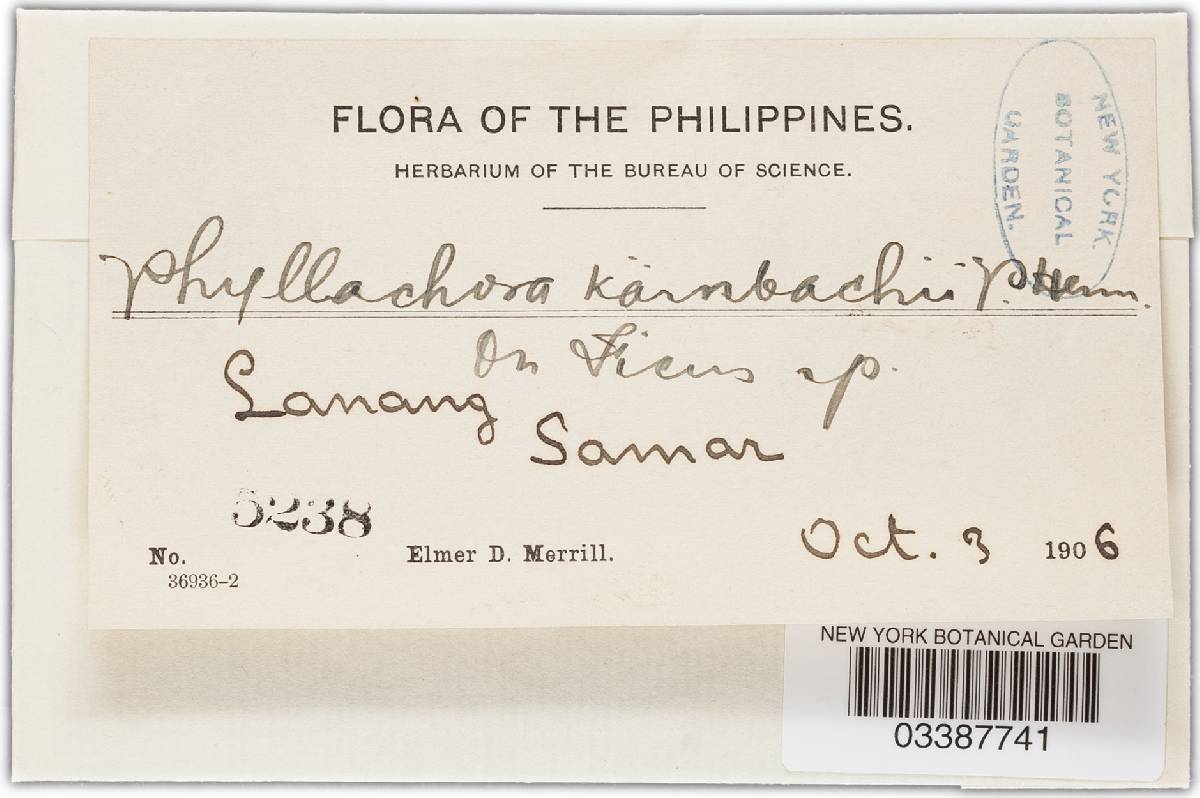 FLORA OF THE PHILIPPINES.
HERBARIUM OF THE BUREAU OF SCIENCE.
NEW YORK
BOTANICAL
GARDEN.
Phyllachora kärnbachii P. Henn.
On Ficus sp.
Lanang
Samar
5238
No.
36936-2
Elmer D. Merrill.
Oct. 3 1906
NEW YORK BOTANICAL GARDEN
03387741